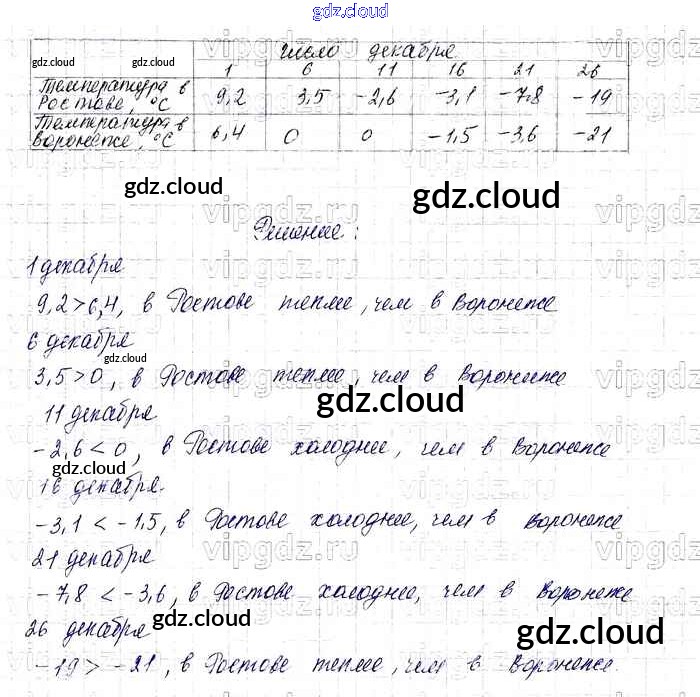 gdz.cloud
gdz.cloud gdz.cloud Число декабря
1 6 11 16 21 26
Температура в Ростове, °C 9,2 3,5 -2,6 -3,1 -7,8 -19
Температура в Воронеже, °C 6,4 0 0 -1,5 -3,6 -21
gdz.cloud gdz.cloud
vipgdz.ru
Решение:
1 декабря
9,2>6,4, в Ростове теплее, чем в Воронеже
6 декабря
gdz.cloud
3,5>0, в Ростове теплее, чем в Воронеже
gdz.cloud
11 декабря
-2,6<0, в Ростове холоднее, чем в Воронеже
gdz.cloud
16 декабря.
-3,1 < -1,5, в Ростове холоднее, чем в Воронеже
21 декабря
-7,8 < -3,6, в Ростове холоднее, чем в Воронеже
26 декабря
gdz.cloud gdz.cloud
-19 > -21, в Ростове теплее, чем в Воронеже.